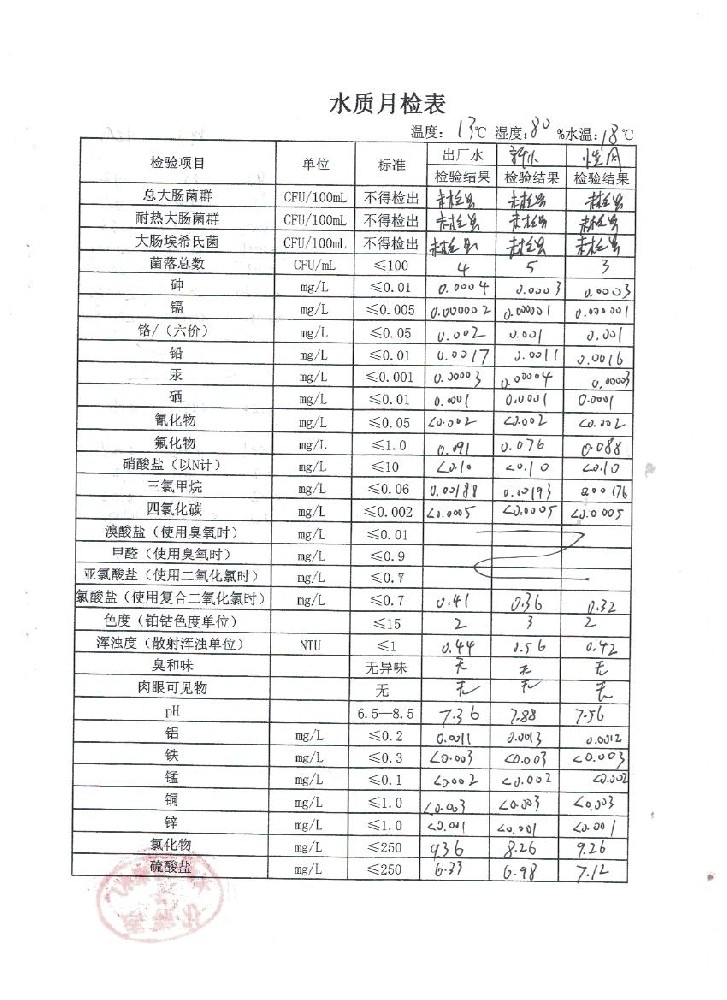 水质月检表
温度: 13℃ 湿度: 80 %水温: 18℃
检验项目 单位 标准 出厂水
检验结果 检验结果 检验结果
总大肠菌群 CFU/100mL 不得检出 未检出 未检出 未检出
耐热大肠菌群 CFU/100mL 不得检出 未检出 未检出 未检出
大肠埃希氏菌 CFU/100mL 不得检出 未检出 未检出 未检出
菌落总数 CFU/mL ≤100 4 5 3
砷 mg/L ≤0.01 0.0004 0.0003 0.0003
镉 mg/L ≤0.005 0.000002 0.000001 0.000001
铬/(六价) mg/L ≤0.05 0.002 0.001 0.001
铅 mg/L ≤0.01 0.0017 0.0011 0.0016
汞 mg/L ≤0.001 0.00003 0.00004 0.00003
硒 mg/L ≤0.01 0.0001 0.0001 0.0001
氰化物 mg/L ≤0.05 <0.002 <0.002 <0.002
氟化物 mg/L ≤1.0 0.091 0.076 0.088
硝酸盐(以N计) mg/L ≤10 <0.10 <0.10 <0.10
三氯甲烷 mg/L ≤0.06 0.00188 0.00193 0.00176
四氯化碳 mg/L ≤0.002 <0.0005 <0.0005 <0.0005
溴酸盐(使用臭氧时) mg/L ≤0.01
甲醛(使用臭氧时) mg/L ≤0.9
亚氯酸盐(使用二氧化氯时) mg/L ≤0.7
氯酸盐(使用复合二氧化氯时) mg/L ≤0.7 0.41 0.36 0.32
色度(铂钴色度单位) ≤15 2 3 2
浑浊度(散射浑浊单位) NTU ≤1 0.44 0.56 0.42
臭和味 无异味 无 无 无
肉眼可见物 无 无 无 无
pH 6.5—8.5 7.36 7.88 7.56
铝 mg/L ≤0.2 0.0011 0.0013 0.0012
铁 mg/L ≤0.3 <0.003 <0.003 <0.003
锰 mg/L ≤0.1 <0.002 <0.002 <0.002
铜 mg/L ≤1.0 <0.003 <0.003 <0.003
锌 mg/L ≤1.0 <0.001 <0.001 <0.001
氯化物 mg/L ≤250 9.36 8.26 9.26
硫酸盐 mg/L ≤250 6.33 6.98 7.12